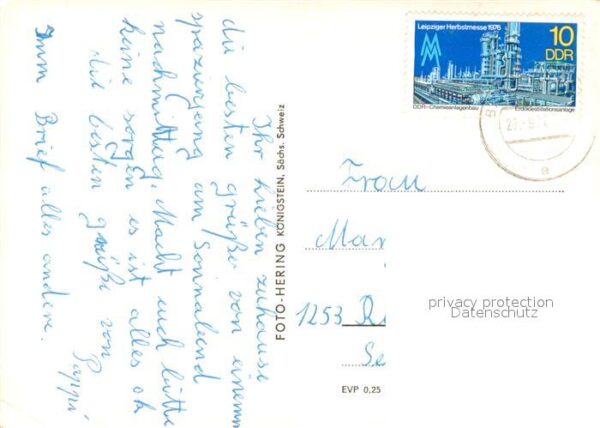 Ihr lieben zuhause
die besten grüße von einem
spaziergang am Sonnabend
nachmittag. Macht euch bitte
keine sorgen es ist alles ok
die besten grüße von
Pappi
Imm Brief alles andere.
FOTO-HERING KÖNIGSTEIN, Sächs. Schweiz
Leipziger Herbstmesse 1976
10
DDR
DDR-Chemieanlagenbau
Erdöldestillationsanlage
Frau
Mar
1253 Rü
Se
privacy protection
Datenschutz
EVP 0,25